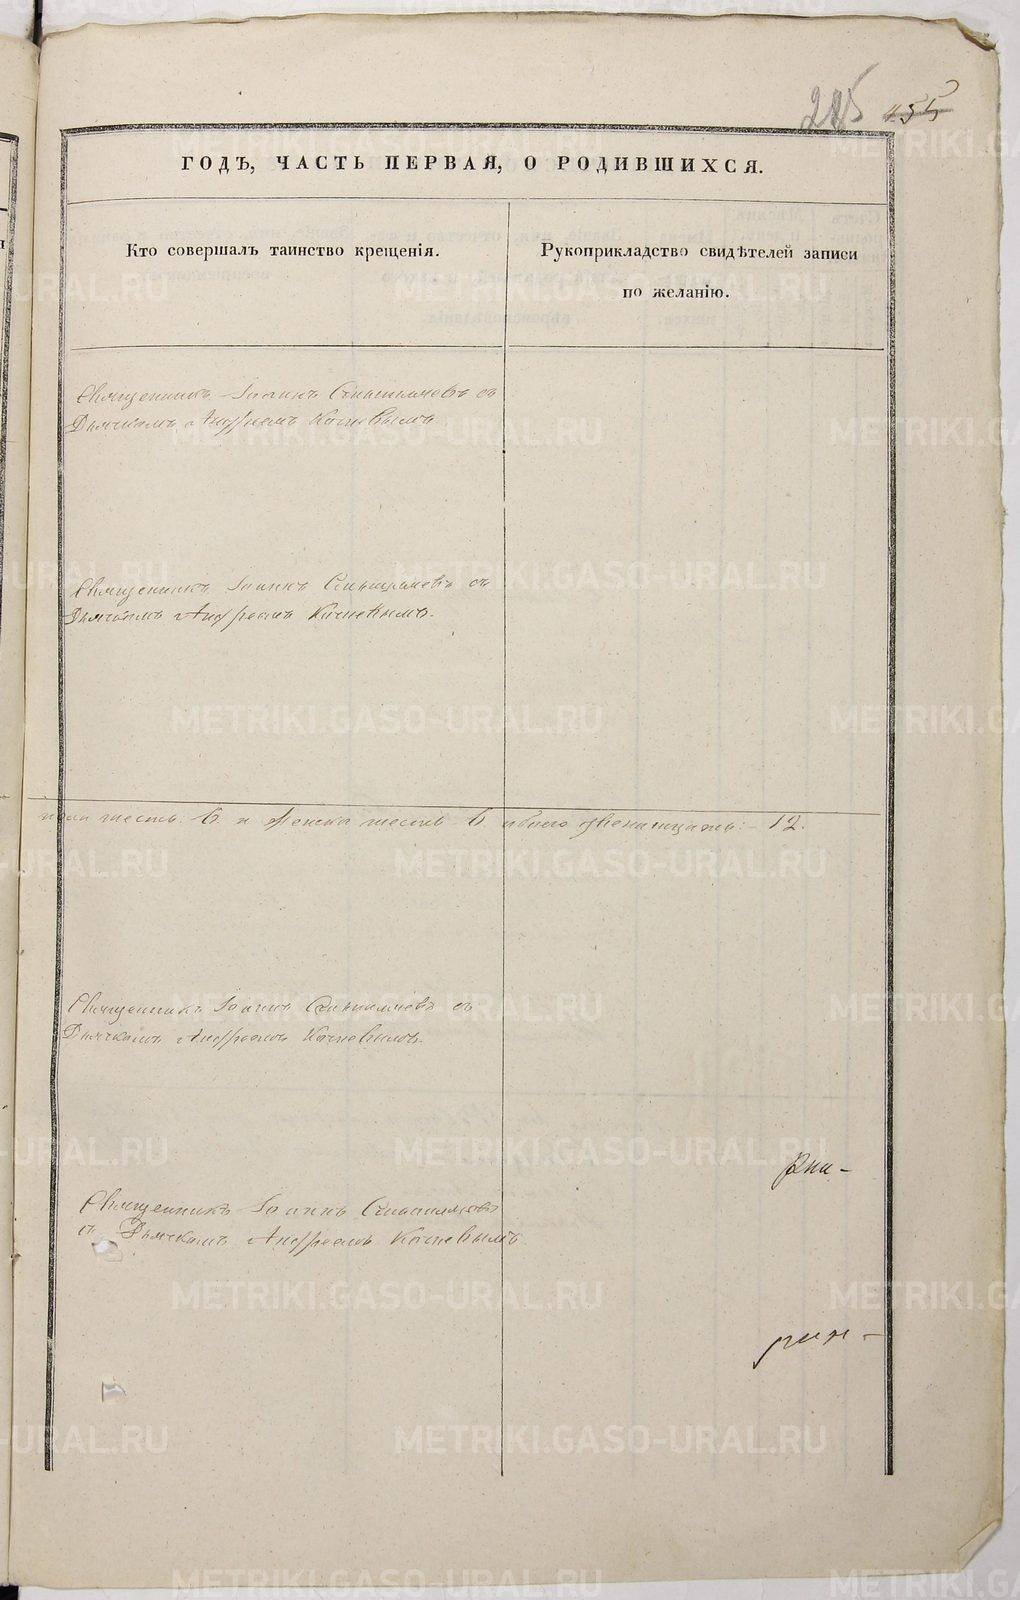 225 455
ГОДЪ, ЧАСТЬ ПЕРВАЯ, О РОДИВШИХСЯ.
Кто совершалъ таинство крещенія.
Рукоприкладство свидѣтелей записи
по желанію.
Священникъ Іоаннъ съ
Дьячкомъ Андреемъ Косневымъ
Священникъ Іоаннъ съ
Дьячкомъ Андреемъ Косневымъ.
пола шесть 6. и женска шесть 6 обоего двенатцать: 12.
Священникъ Іоаннъ съ
Дьячкомъ Андреемъ Косневымъ.
Священникъ Іоаннъ
съ Дьячкомъ Андреемъ Косневымъ
METRIKI.GASO-URAL.RU